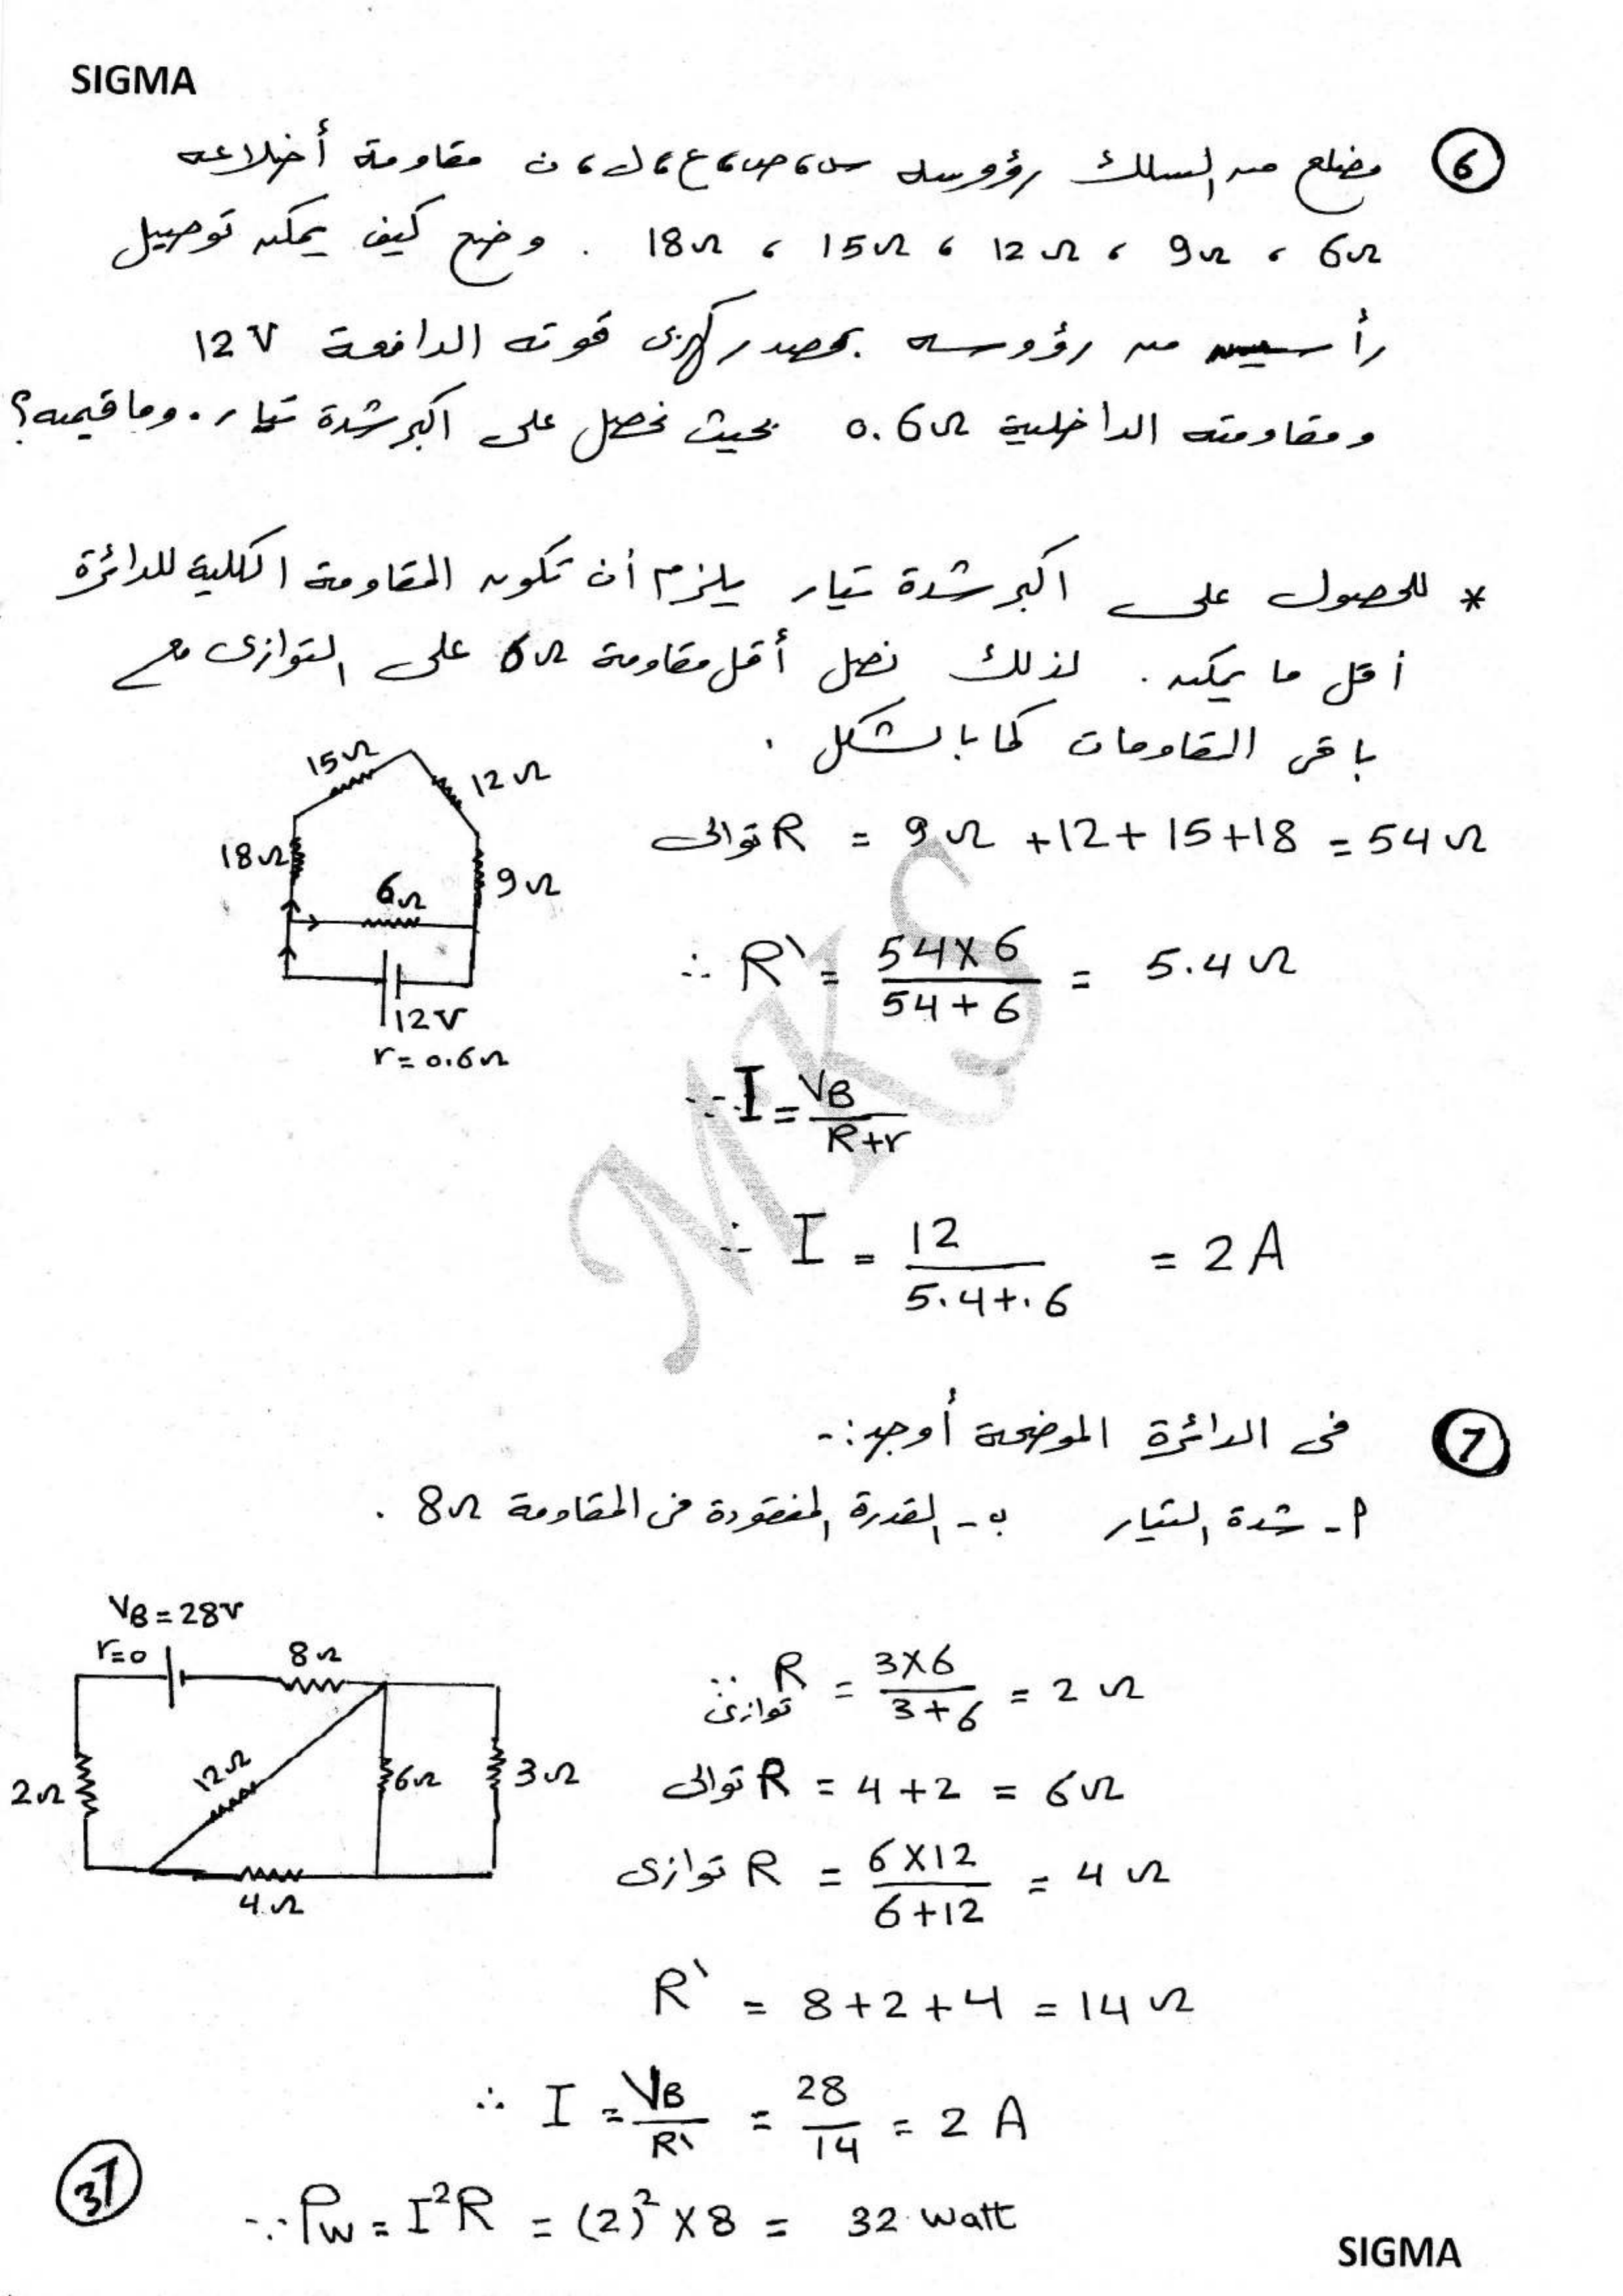 SIGMA
6 مضلع من السلك رؤوسه س ، ص ، ع ، ل ، ن مقاومة أضلاعه
6Ω ، 9Ω ، 12Ω ، 15Ω ، 18Ω . وضح كيف يمكن توصيل
رأسين من رؤوسه بمصدر كهربى قوته الدافعة 12V
ومقاومته الداخلية 0.6Ω بحيث نحصل على اكبر شدة تيار . وما قيمته؟
* للحصول على اكبر شدة تيار يلزم أن تكون المقاومة الكلية للدائرة
أقل ما يمكن . لذلك نصل أقل مقاومة 6Ω على التوازى مع
باقى المقاومات كما بالشكل .
15Ω
12Ω
18Ω
6Ω
9Ω
12V
r = 0.6Ω
R توالى = 9Ω +12+15+18 = 54Ω
∴ R\ = 54×6 / 54+6 = 5.4Ω
∴ I = VB / R+r
∴ I = 12 / 5.4+.6 = 2A
7 فى الدائرة الموضحة أوجد :-
أ - شدة التيار ب - القدرة المفقودة فى المقاومة 8Ω .
VB = 28V
r=0
8Ω
2Ω
12Ω
6Ω
3Ω
4Ω
∴ R توازى = 3×6 / 3+6 = 2Ω
R توالى = 4+2 = 6Ω
R توازى = 6×12 / 6+12 = 4Ω
R\ = 8+2+4 = 14Ω
∴ I = VB / R\ = 28 / 14 = 2 A
∵ Pw = I²R = (2)² × 8 = 32 watt
37
SIGMA
MKS